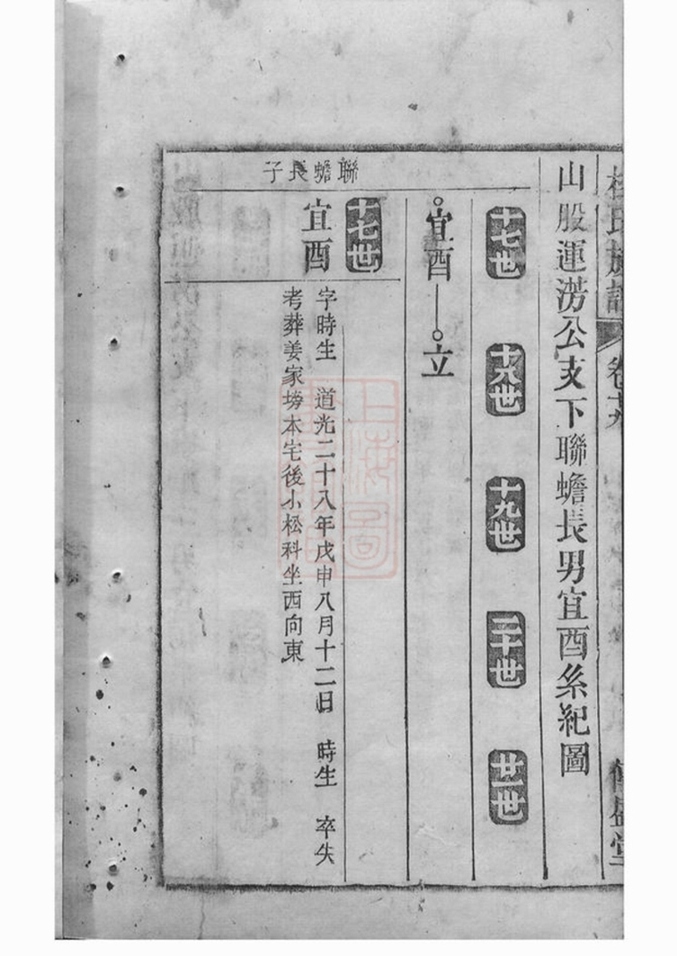 氏族譜 卷
山股運澇公支下聯蟾長男宜酉系紀圖
十七世 十八世 十九世 二十世 廿一世
宜酉 立
聯蟾長子
十七世
宜酉
字時生 道光二十八年戊申八月十二日 時生 卒失
考葬姜家塝本宅後小松科坐西向東